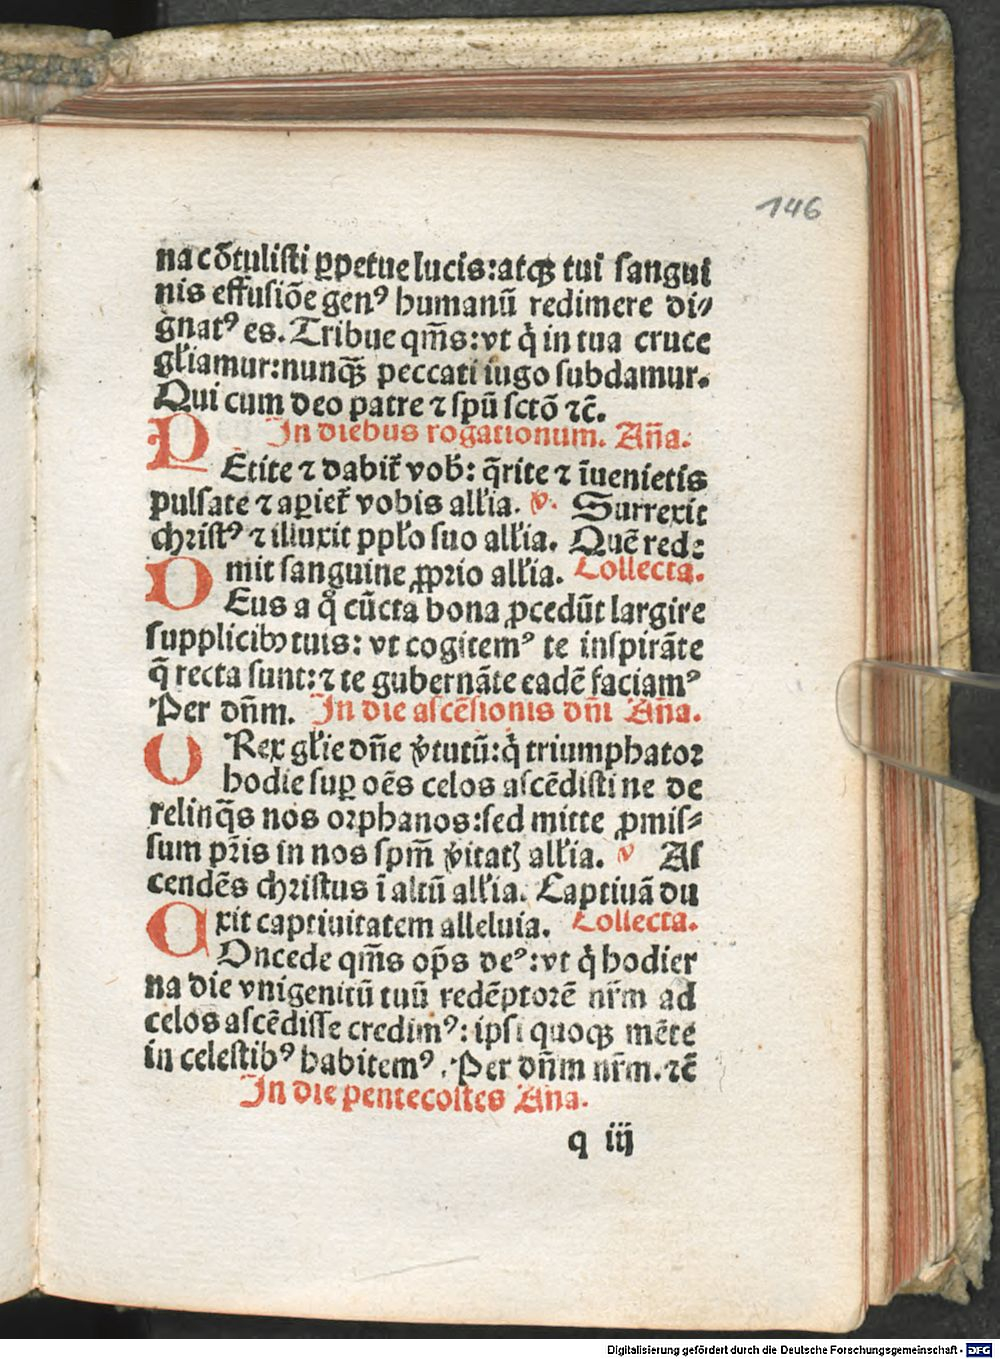 146
na cōtulisti ꝑpetue lucis:atqꝫ tui sangui
nis effusiōe genꝰ humanū redimere di⸗
gnatꝰ es. Tribue qm̄s:vt q̇ in tua cruce
gl̓iamur:nunqꝫ̄ peccati iugo subdamur.
Qui cum deo patre ⁊ spū sctō ⁊c̄.
In diebus rogationum. An̄a.
PEtite ⁊ dabit᷑ vob̓: q̄rite ⁊ īuenietis
pulsate ⁊ aꝑiet᷑ vobis all̓ia. v. Surrexit
christꝰ ⁊ illuxit ppl̓o suo all̓ia. Quē rede
mit sanguine ꝓprio all̓ia. Collecta.
DEus a q̊ cūcta bona ꝓcedūt largire
supplicibꝫ tuis: vt cogitemꝰ te inspirāte
q̄ recta sunt:⁊ te gubernāte eadē faciamꝰ
Per dn̄m. In die ascēsionis dn̄i An̄a.
O Rex gl̓ie dn̄e v̓tutū:q̇ triumphator
hodie suꝑ oēs celos ascēdisti ne de
relinq̄s nos orphanos:sed mitte ꝓmis⸗
sum pr̄is in nos spm̄ v̓itatꝭ all̓ia. v As
cendēs christus ī altū all̓ia. Captiuā du
xit captiuitatem alleluia. Collecta.
COncede qm̄s op̄s deꝰ:vt q̇ hodier
na die vnigenitū tuū redēptorē nr̄m ad
celos ascēdisse credimꝰ: ipsi quoqꝫ mēte
in celestibꝰ habitemꝰ. Per dn̄m nr̄m. ⁊c̄
In die pentecostes An̄a.
q iij
Digitalisierung gefördert durch die Deutsche Forschungsgemeinschaft - DFG